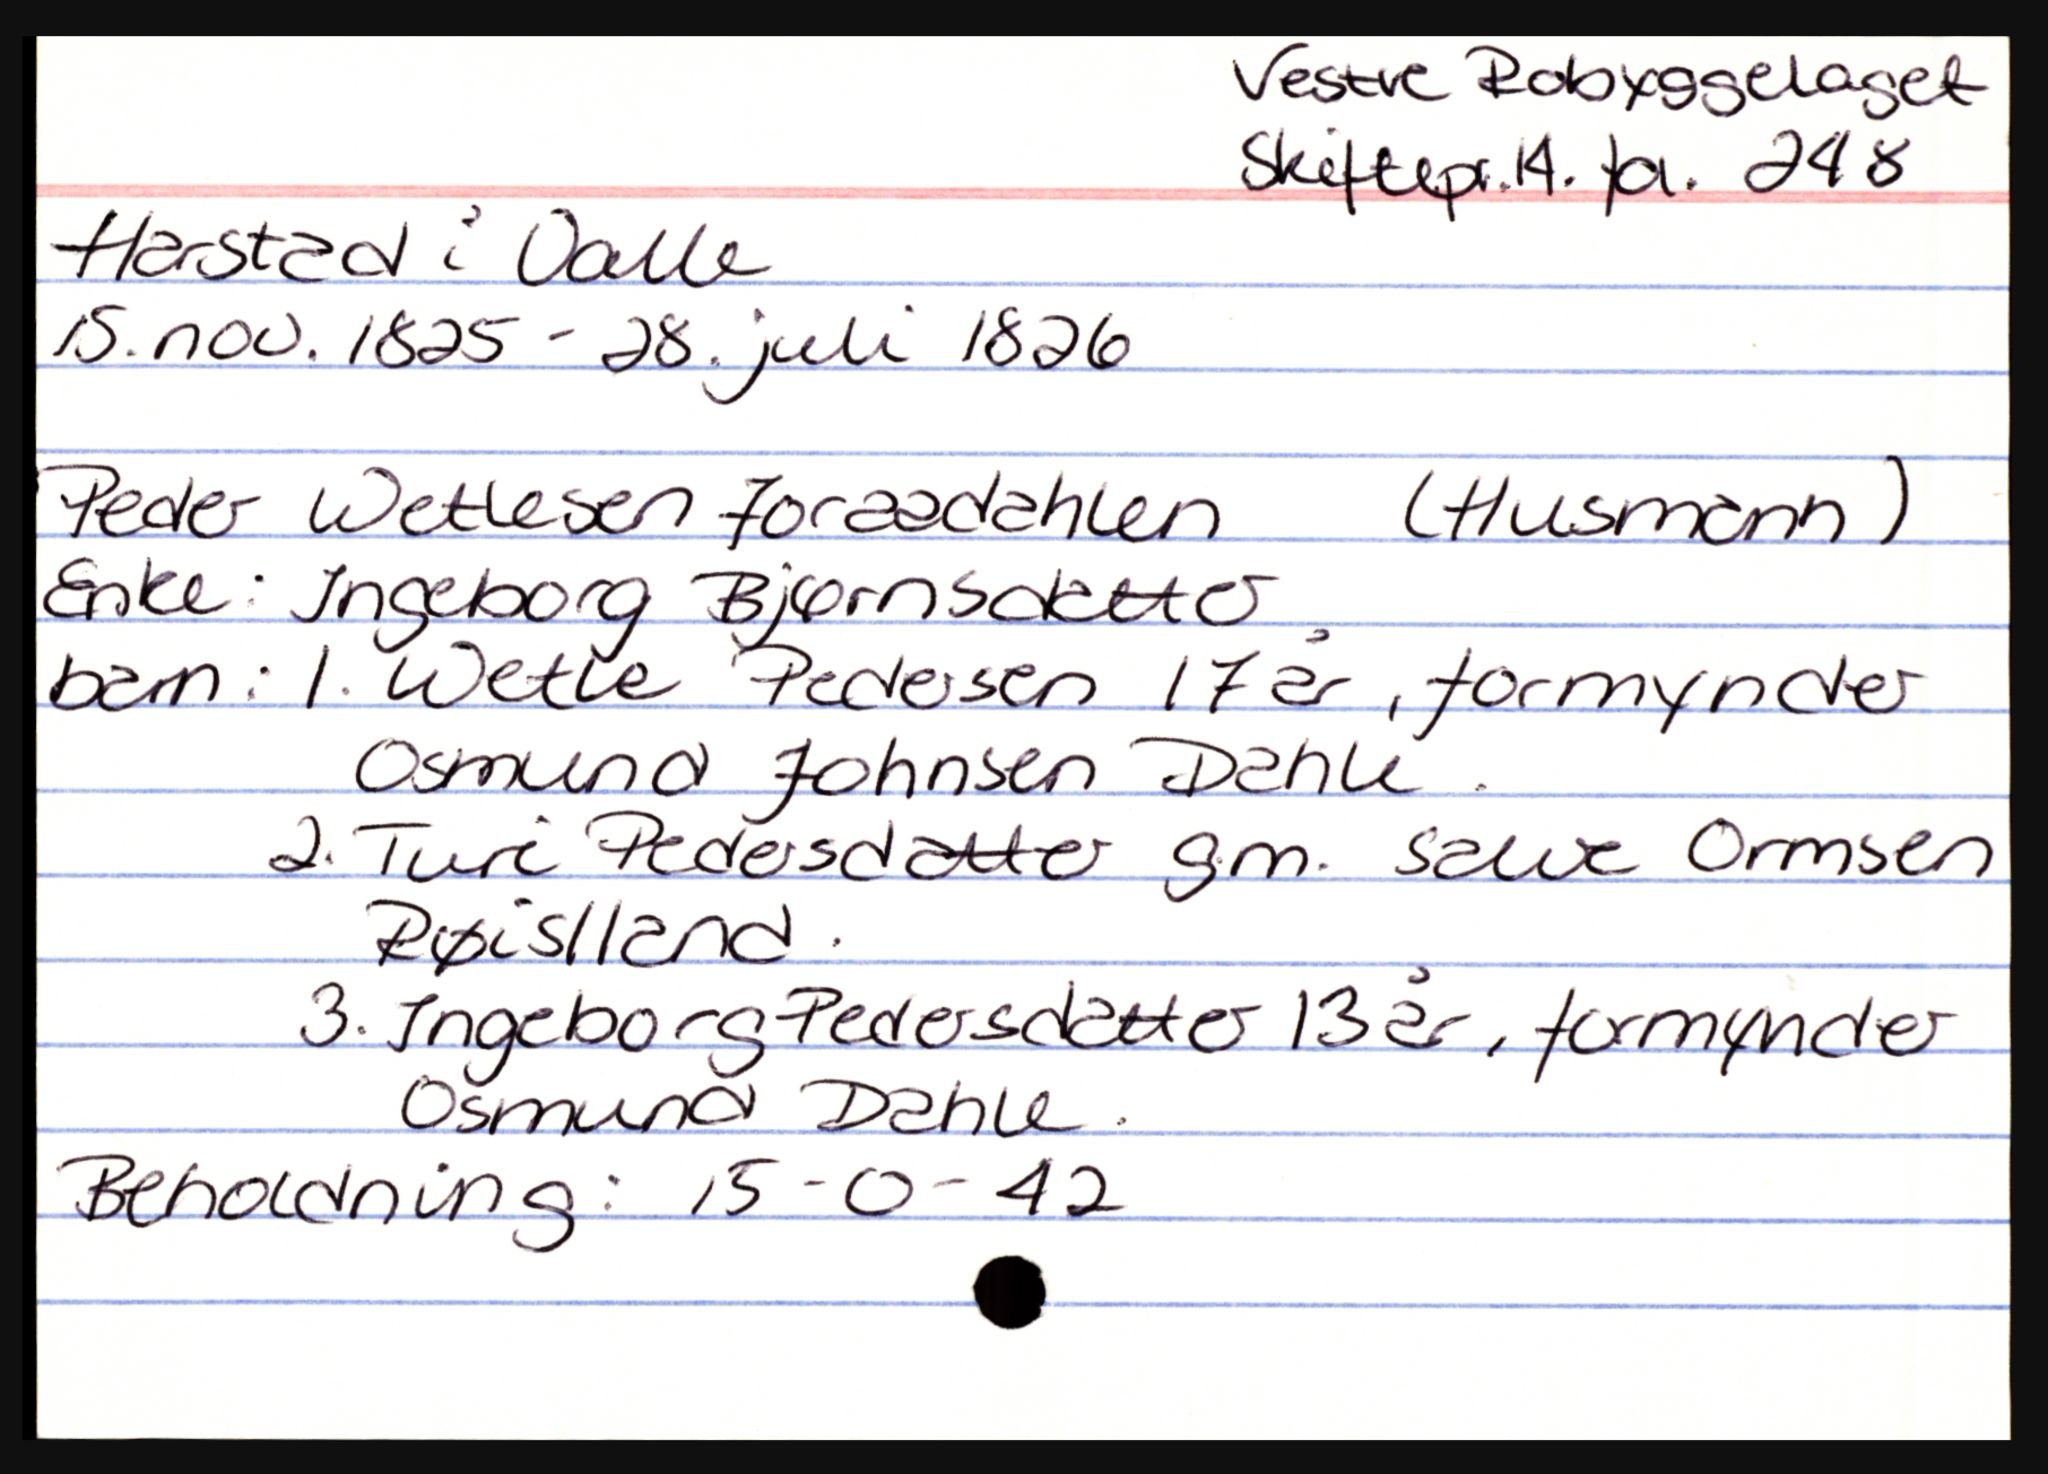 Vestre Robyggelaget
Skiftepr. 14. fol. 248
Harstad i Valle
15. nov. 1825 - 28. juli 1826
Peder Wetlesen Foraadahlen (Husmann)
Enke: Ingeborg Bjørnsdatter
barn: 1. Wetle Pedersen 17 år, formynder
Osmund Johnsen Dahle.
2. Turi Pedersdatter g.m. Salve Ormsen
Røislland.
3. Ingeborg Pedersdatter 13 år, formynder
Osmund Dahle.
Beholdning: 15-0-42